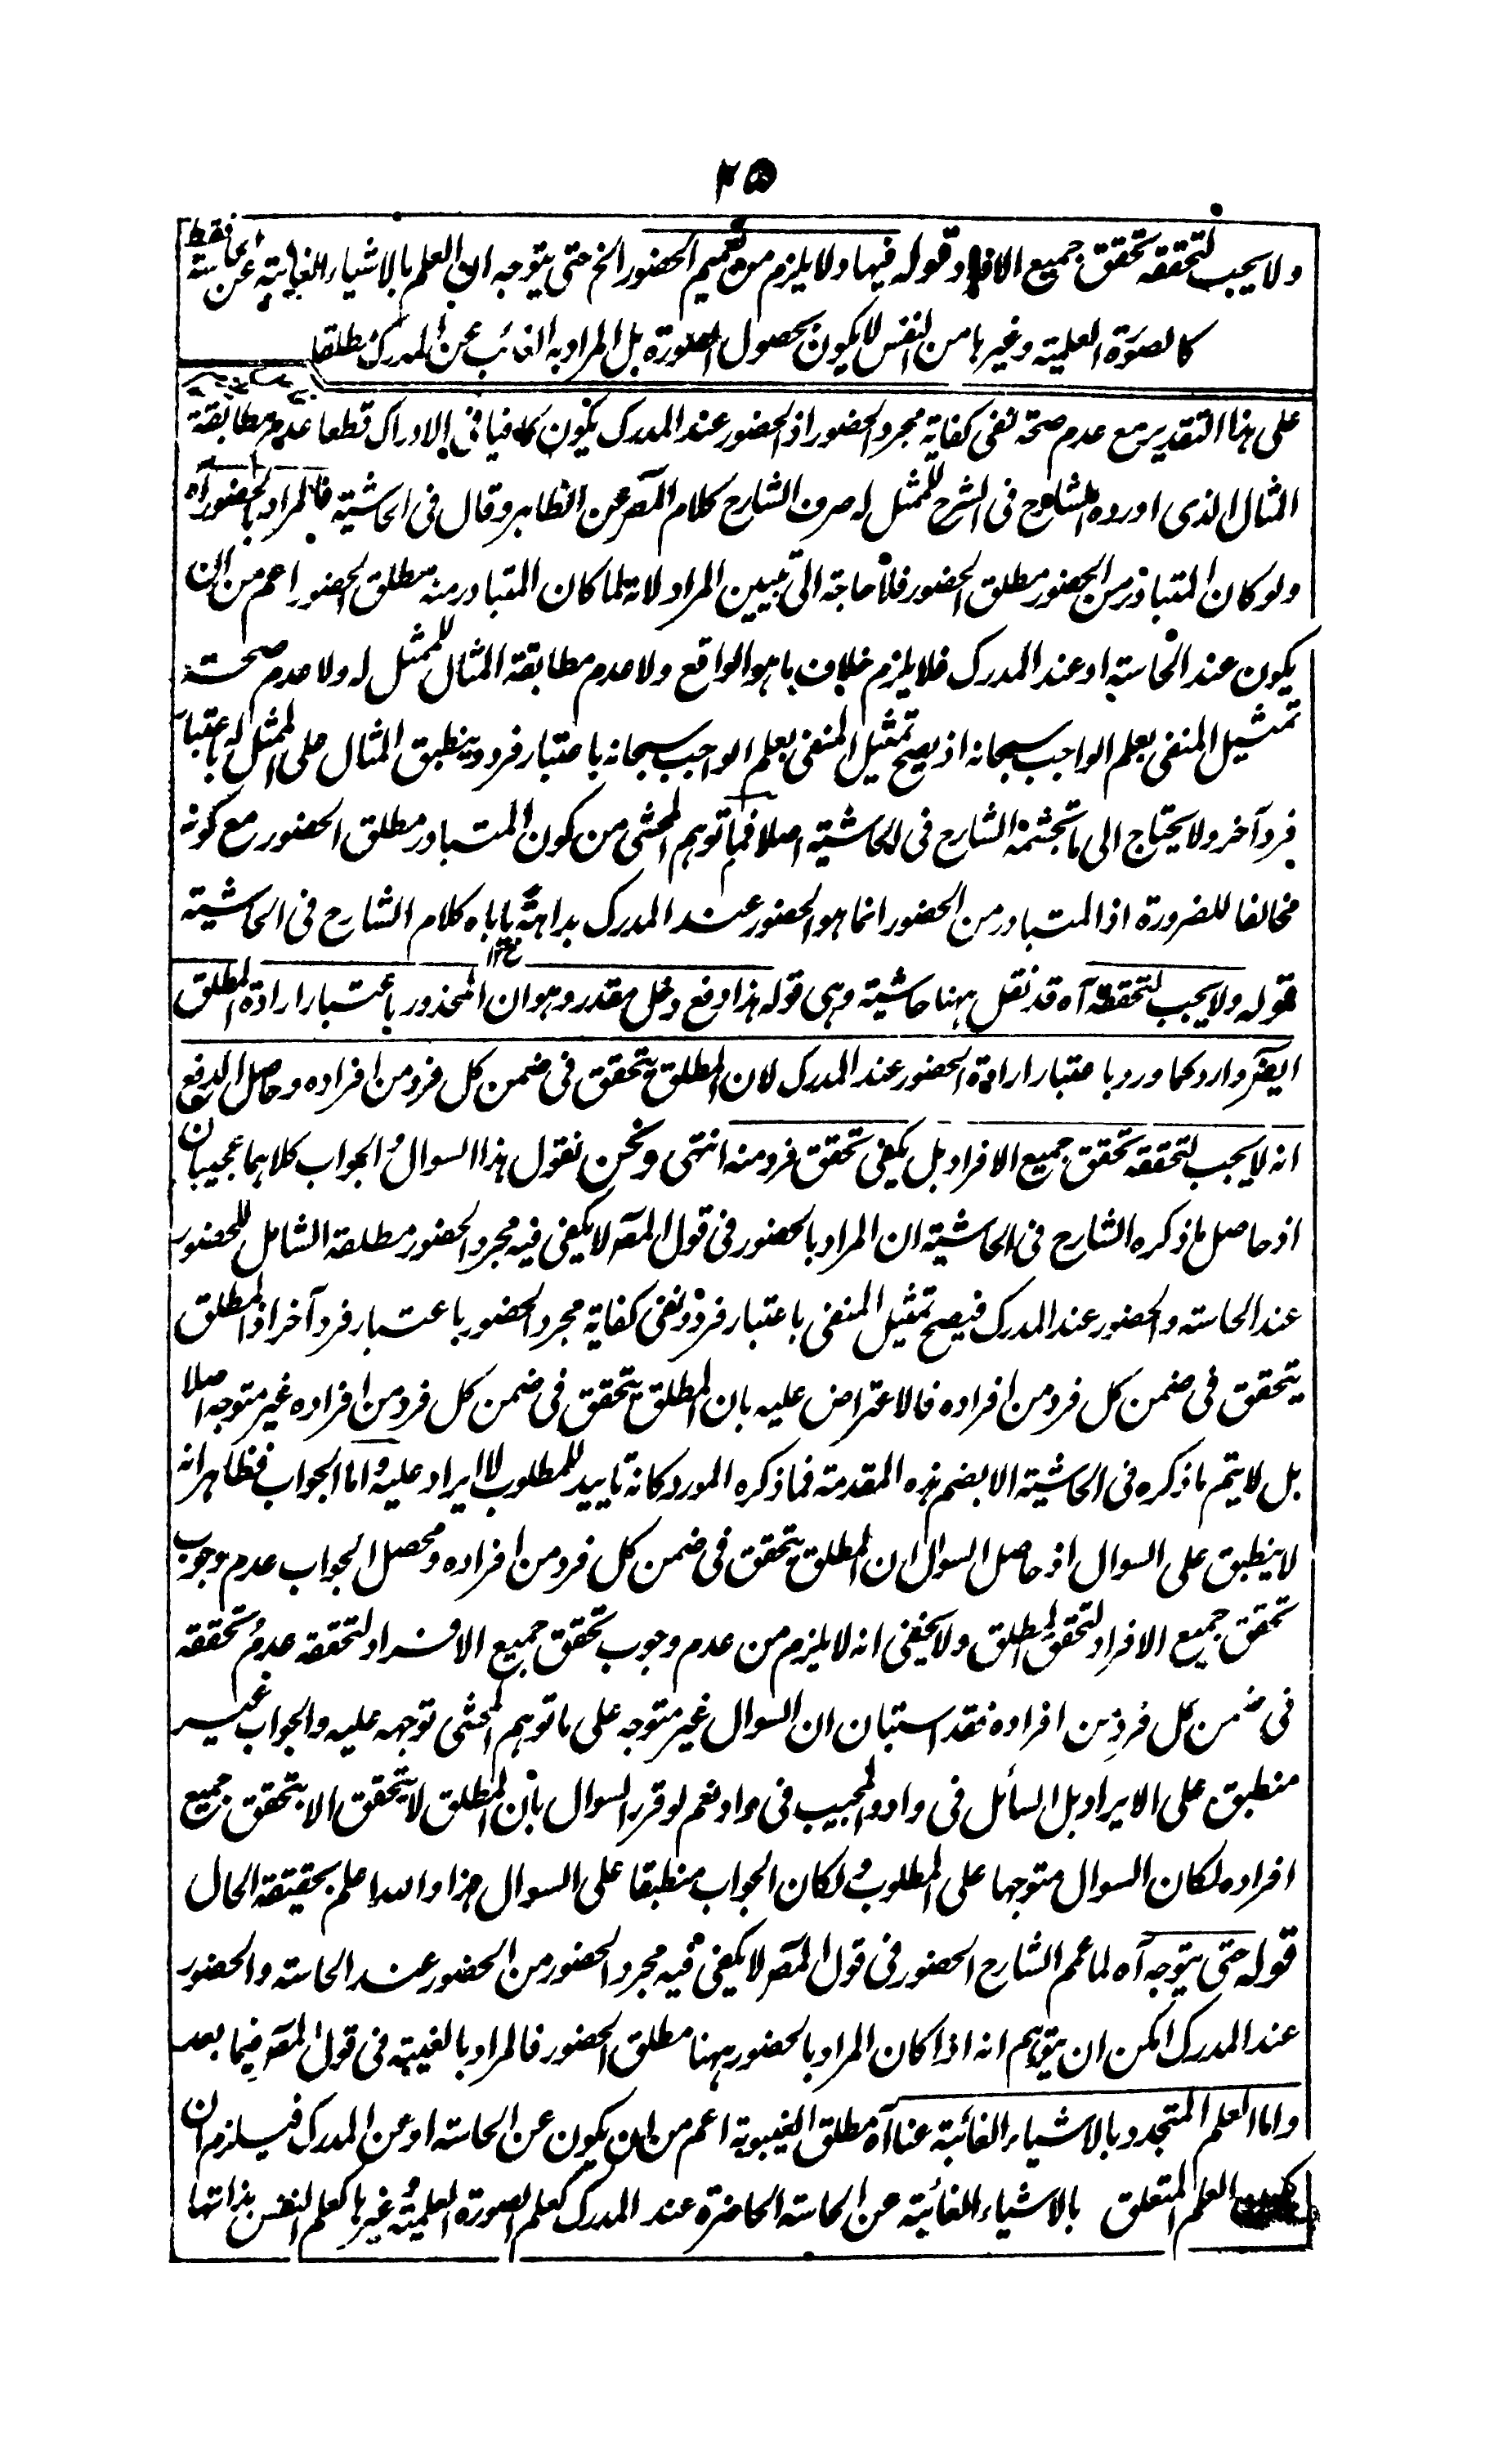 ٢٥
ولا يجب لتحققه تحقق جميع الافراد قوله فيها ولا يلزم من تعميم الحضور الخ حتى يتوجه ان العلم بالاشياء الغائبة عن الحاسة فقط
كالصورة العلمية وغيرها من النفس لا يكون بحصول الصورة بل المراد به الغائب عن المدرك مطلقا
على هذا التقدير مع عدم صحة نفى كفاية مجرد الحضور اذ الحضور عند المدرك يكون كافيا فى الادراك قطعا عدم مطابقة
المثال الذى اورده الشارح فى الشرح للممثل له صرف الشارح كلام المصـ عن الظاهر وقال فى الحاشية فالمراد بالحضور آه
ولو كان المتبادر من الحضور مطلق الحضور فلا حاجة الى تبيين المراد لانه لما كان المتبادر منه مطلق الحضور اعم من ان
يكون عند الحاسة او عند المدرك فلا يلزم خلاف ما هو الواقع ولا عدم مطابقة المثال للممثل له ولا عدم صحة
تمثيل المنفى بعلم الواجب سبحانه اذ يصح تمثيل المنفى بعلم الواجب سبحانه باعتبار فرد وينطبق المثال على الممثل له باعتبار
فرد آخر ولا يحتاج الى ما تجشمه الشارح فى الحاشية اصلا فما توهم المحشى من كون المتبادر مطلق الحضور مع كونه
مخالفا للضرورة اذ المتبادر من الحضور انما هو الحضور عند المدرك بداهة ياباه كلام الشارح فى الحاشية
قوله ولا يجب لتحققه آه قد نقل ههنا حاشية وهى قوله هذا دفع دخل مقدر وهو ان المحذور باعتبار ارادة المطلق
ايضـ وارد كما ورد باعتبار ارادة الحضور عند المدرك لان المطلق يتحقق فى ضمن كل فرد من افراده وحاصل الدفع
انه لا يجب لتحققه تحقق جميع الافراد بل يكفى تحقق فرد منه انتهى ونحن نقول هذا السوال والجواب كلاهما عجيبان
اذ حاصل ما ذكره الشارح فى الحاشية ان المراد بالحضور فى قول المصـ لا يكفى فيه مجرد الحضور مطلقه الشامل للحضور
عند الحاسة والحضور عند المدرك فيصح تمثيل المنفى باعتبار فرد ونفى كفاية مجرد الحضور باعتبار فرد آخر اذ المطلق
يتحقق فى ضمن كل فرد من افراده فالاعتراض عليه بان المطلق يتحقق فى ضمن كل فرد من افراده غير متوجه اصلا
بل لا يتم ما ذكره فى الحاشية الا بضم هذه المقدمة فما ذكره المورد كانه تاييد للمطلوب لا ايراد عليه واما الجواب فظاهر انه
لا ينطبق على السوال اذ حاصل السوال ان المطلق يتحقق فى ضمن كل فرد من افراده ومحصل الجواب عدم وجوب
تحقق جميع الافراد لتحقق المطلق ولا يخفى انه لا يلزم من عدم وجوب تحقق جميع الافراد لتحققه عدم تحققه
فى ضمن كل فرد من افراده فقد استبان ان السوال غير متوجه على ما توهم المحشى توجهه عليه والجواب غير
منطبق على الايراد بل السائل فى واد والمجيب فى واد نعم لو قرر السوال بان المطلق لا يتحقق الا بتحقق جميع
افراده لكان السوال متوجها على المطلوب ولكان الجواب منطبقا على السوال هذا والله اعلم بحقيقة الحال
قوله حتى يتوجه آه لما عمم الشارح الحضور فى قول المصـ لا يكفى فيه مجرد الحضور من الحضور عند الحاسة والحضور
عند المدرك امكن ان يتوهم انه اذا كان المراد بالحضور ههنا مطلق الحضور فالمراد بالغيبة فى قول المصـ فيما بعد
واما العلم المتجدد بالاشياء الغائبة عنا آه مطلق الغيبوبة اعم من ان يكون عن الحاسة او عن المدرك فيلزم ان
العلم المتعلق بالاشياء الغائبة عن الحاسة الحاضرة عند المدرك كعلم الصورة العلمية وغيرها كعلم النفس بذاتها